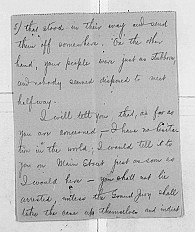 2/ that stood in their way and send
them off somewhere. On the other
hand, your people were just as stubborn
and nobody seemed disposed to meet
halfway.
I will tell you that, as far as
you are concerned – I have no hesita-
tion in the world; I would tell it to
you on Main Street just as soon as
I would here – you shall not be
arrested, unless the Grand Jury shall
take the case up themselves and indict